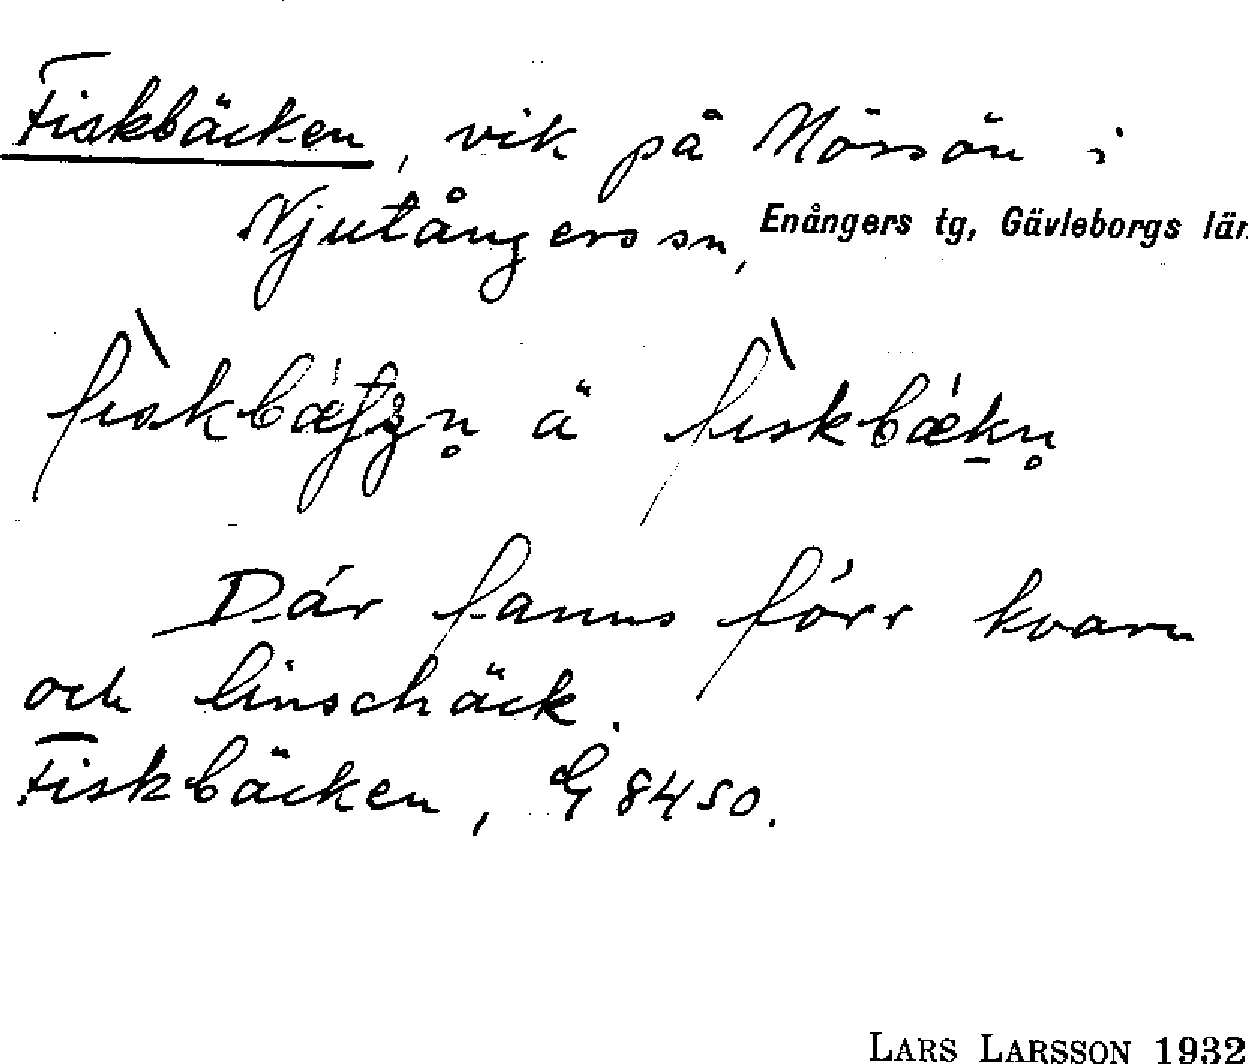 Fiskbäcken, vik på Mössön i
Njutångers sn, Enångers tg, Gävleborgs län
à
Där fanns förr kvarn
och linschäck.
Fiskbäcken, G 8450.
LARS LARSSON 1932